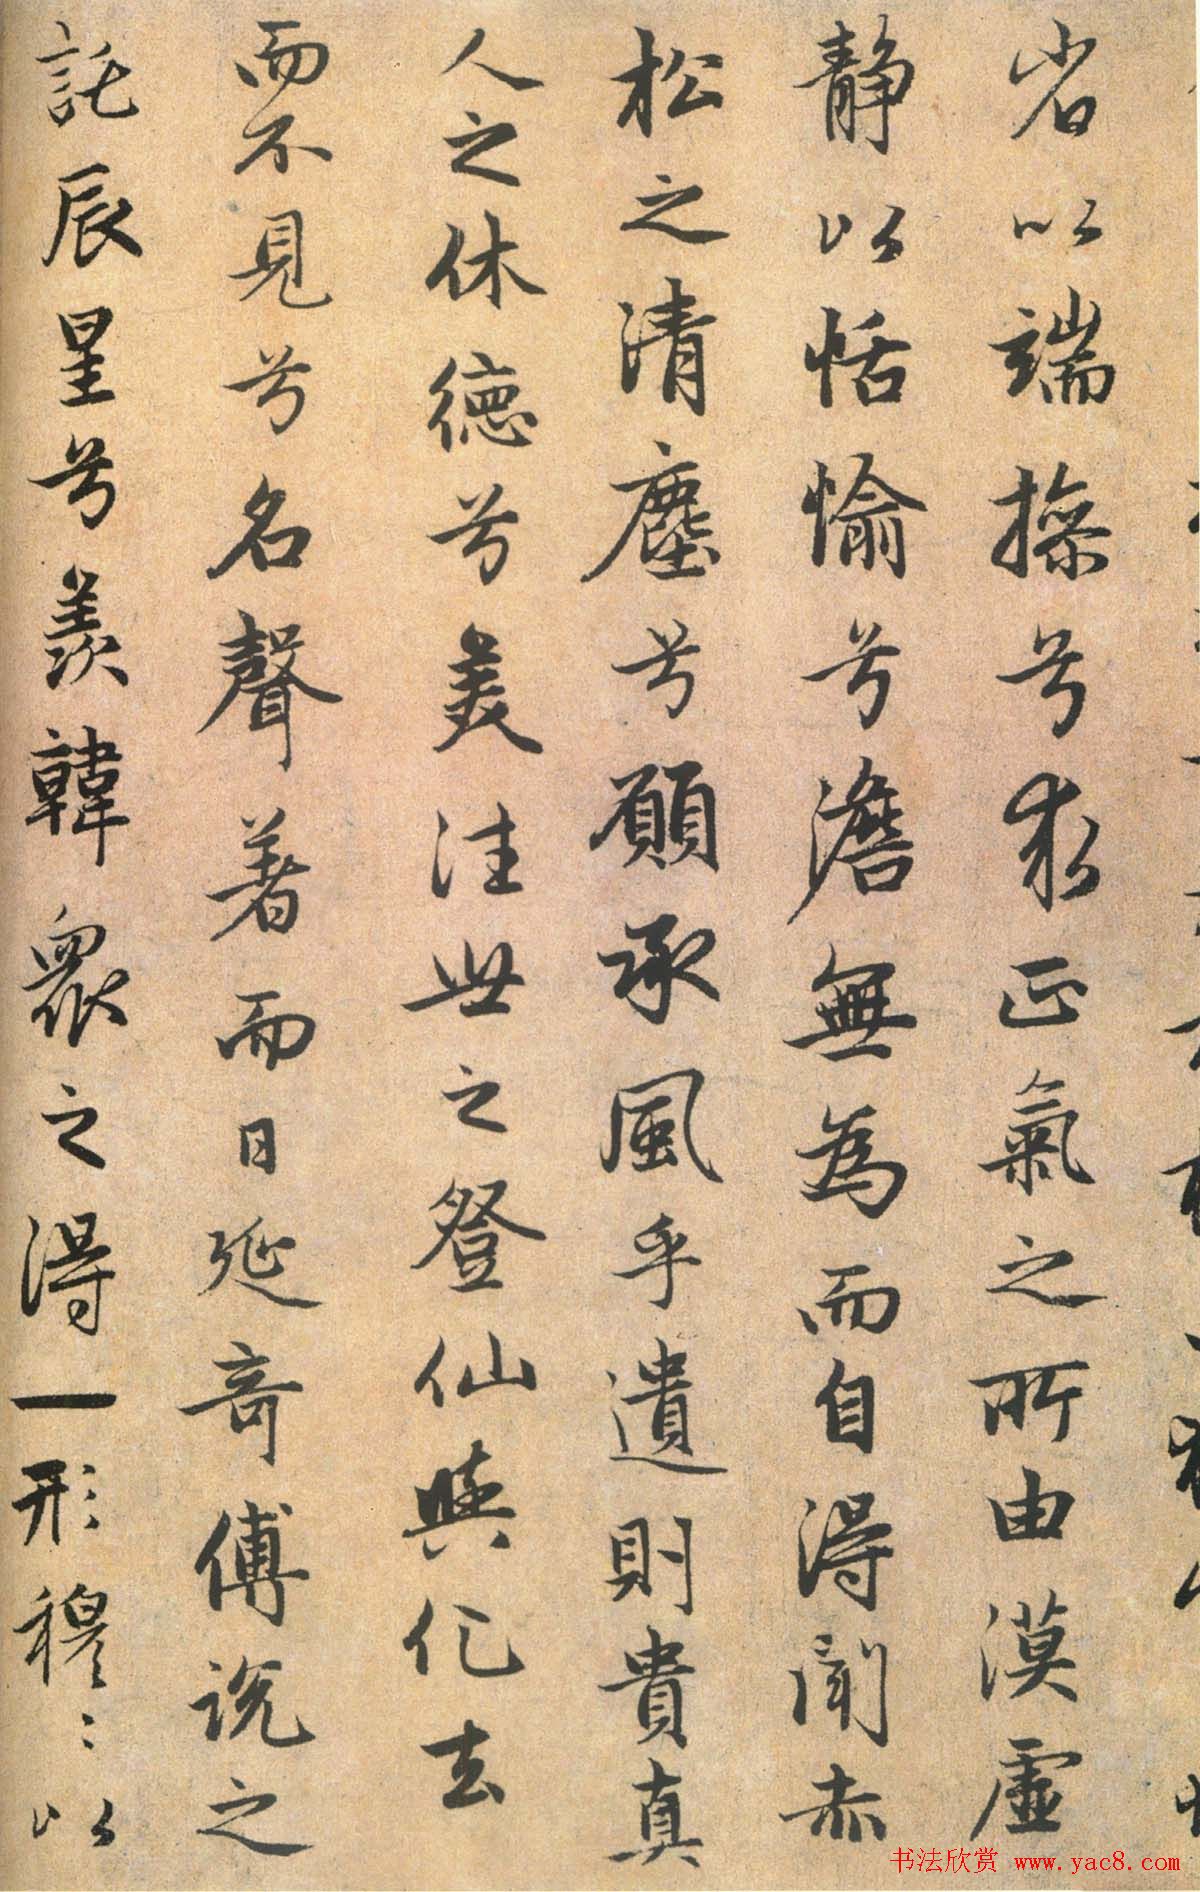 省以端操兮求正氣之所由漠虛
靜以恬愉兮澹無為而自得聞赤
松之清塵兮願承風乎遺則貴真
人之休德兮羨往世之登仙與化去
而不見兮名聲著而日延奇傅說之
託辰星兮羨韓眾之得一形穆〻以
书法欣赏 www.yac8.com